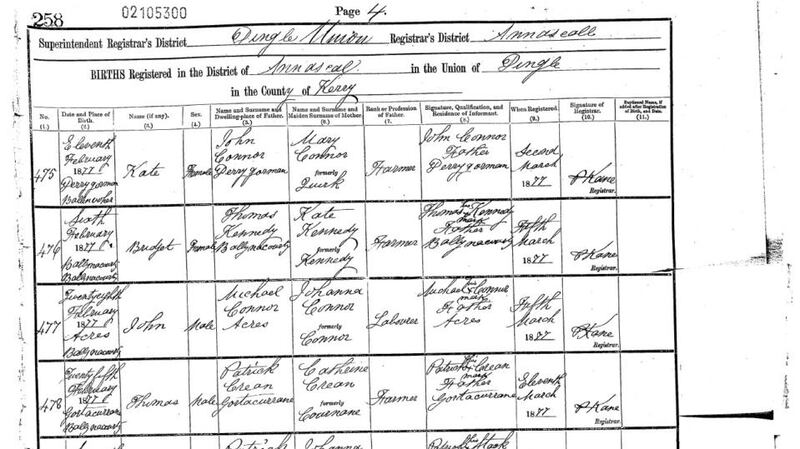 258
02105300
Page 4.
Superintendent Registrar's District Dingle Union Registrar's District Annascall
BIRTHS Registered in the District of Annascal in the Union of Dingle
in the County of Kerry
No. Date and Place of Birth Name (if any). Sex. Name and Surname and Dwelling-place of Father. Name and Surname and Maiden Surname of Mother. Rank or Profession of Father. Signature, Qualification, and Residence of Informant. When Registered. Signature of Registrar. Baptismal Name, if added after Registration of Birth, and Date.
(1.) (2.) (3.) (4.) (5.) (6.) (7.) (8.) (9.) (10.) (11.)
Eleventh John Mary John Connor Second
February Connor Connor Father March
475 1877 Kate Female Derrygorman formerly Farmer Derrygorman 1877 P Kane
Derrygorman Quirk Registrar.
Sixth Thomas Kate Thomas his Kennedy Fifth
February Kennedy Kennedy mark Father March
476 1877 Bridget Female Ballynacourty formerly Farmer Ballynacourty 1877 P Kane
Ballynacourty Kennedy Registrar.
Ballynacourty
Twentyeighth Michael Johanna Michael his Connor Fifth
February Connor Connor mark Father March
477 1877 John Male Acres formerly Labourer Acres 1877 P Kane
Acres Connor Registrar.
Ballynacourty
Twentyfifth Patrick Catheine Patrick his Crean Eleventh
February Crean Crean mark Father March
478 1877 Thomas Male Gortacurrane formerly Farmer Gortacurrane 1877 P Kane
Gortacurrane Cournane Registrar.
Ballynacourty
Patrick Johanna Patrick his